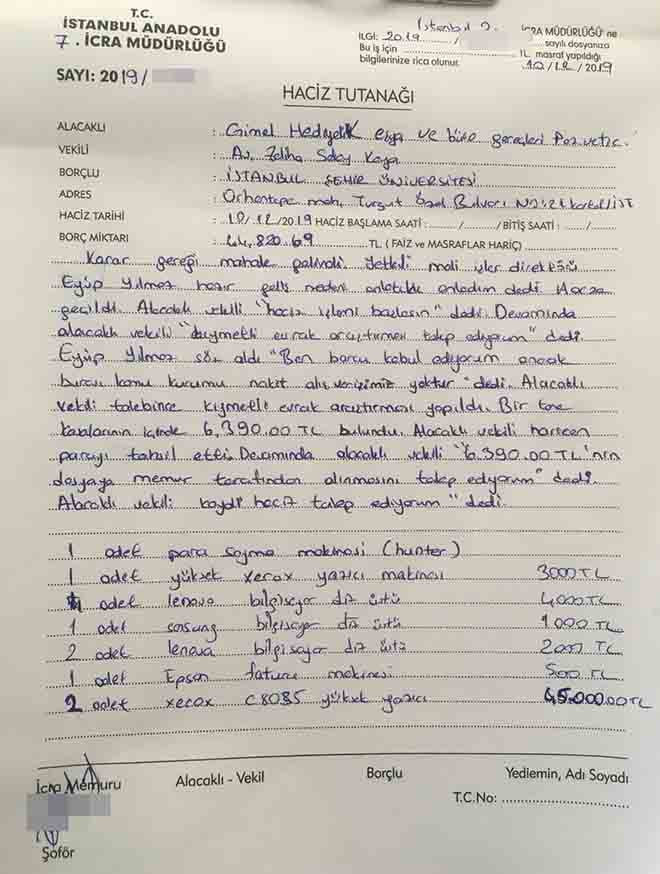 T.C.
İSTANBUL ANADOLU
7. İCRA MÜDÜRLÜĞÜ
SAYI: 2019/
İstanbul 2. İCRA MÜDÜRLÜĞÜ' ne
İLGİ: 2019 / sayılı dosyanıza
Bu iş için TL masraf yapıldığı
bilgilerinize rica olunur. 10/12/2019
HACİZ TUTANAĞI
ALACAKLI : Gimel Hediyelik eşya ve büro gereçleri Paz ve tic.
VEKİLİ : Av. Zeliha Kaya
BORÇLU : İSTANBUL ŞEHİR ÜNİVERSİTESİ
ADRES : Orhantepe mah. Turgut Özal Bulvarı No:21 kartal/İST
HACİZ TARİHİ : 10/12/2019 HACİZ BAŞLAMA SAATİ : / / BİTİŞ SAATİ : / /
BORÇ MİKTARI : 44,820.69 TL ( FAİZ ve MASRAFLAR HARİÇ)
Karar gereği mahale gelindi. Yetkili mali işler direktörü
Eyüp Yılmaz hazır geliş nedeni anlatıldı anladım dedi. Hacze
geçildi. Alacaklı vekili "haciz işlemi başlasın" dedi. Devamında
alacaklı vekili "kıymetli evrak araştırması talep ediyorum" dedi.
Eyüp Yılmaz söz aldı "Ben borcu kabul ediyorum ancak
burası kamu kurumu nakit alış verişimiz yoktur" dedi. Alacaklı
vekili talebince kıymetli evrak araştırması yapıldı. Bir tane
kasalarının içinde 6,390.00 TL bulundu. Alacaklı vekili haricen
parayı tahsil etti. Devamında alacaklı vekili "6.390.00 TL'nin
dosyaya memur tarafından alınmasını talep ediyorum" dedi.
Alacaklı vekili kaydi haciz talep ediyorum" dedi.
1 adet para sayma makinası (hunter)
1 adet yüksek xerox yazıcı makinası 3000 TL
4 adet lenova bilgisayar diz üstü 4000 TL
1 adet samsung bilgisayar diz üstü 1000 TL
2 adet lenova bilgisayar diz üstü 2000 TL
1 adet Epson fatura makinesi 500 TL
2 adet xerox C8035 yüksek yazıcı 45.000.00 TL
İcra Memuru Alacaklı - Vekil Borçlu Yediemin, Adı Soyadı
T.C.No:
Şoför